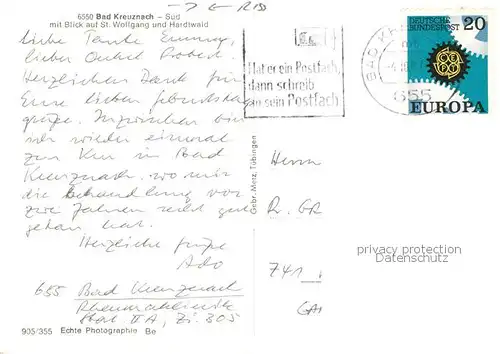 → E RIS
6550 Bad Kreuznach - Süd
mit Blick auf St. Wolfgang und Hardtwald
Liebe Tante Emmy,
lieber Onkel Robert.
Herzlichen Dank für
Eure lieben Geburtstags
grüße. Inzwischen bin
ich wieder einmal
zur Kur in Bad
Kreuznach, wo mir
die Behandlung vor
zwei Jahren recht gut
getan hat.
Herzliche Grüße
Ado
655 Bad Kreuznach
Rheumaklinik
Stat. II A, Zi. 305
905/355 Echte Photographie Be
Gebr. Metz, Tübingen
Hat er ein Postfach,
dann schreib
an sein Postfach
BAD K
655
DEUTSCHE
BUNDESPOST
20
CEPT
EUROPA
Herrn
R. GR
741
GA
privacy protection
Datenschutz